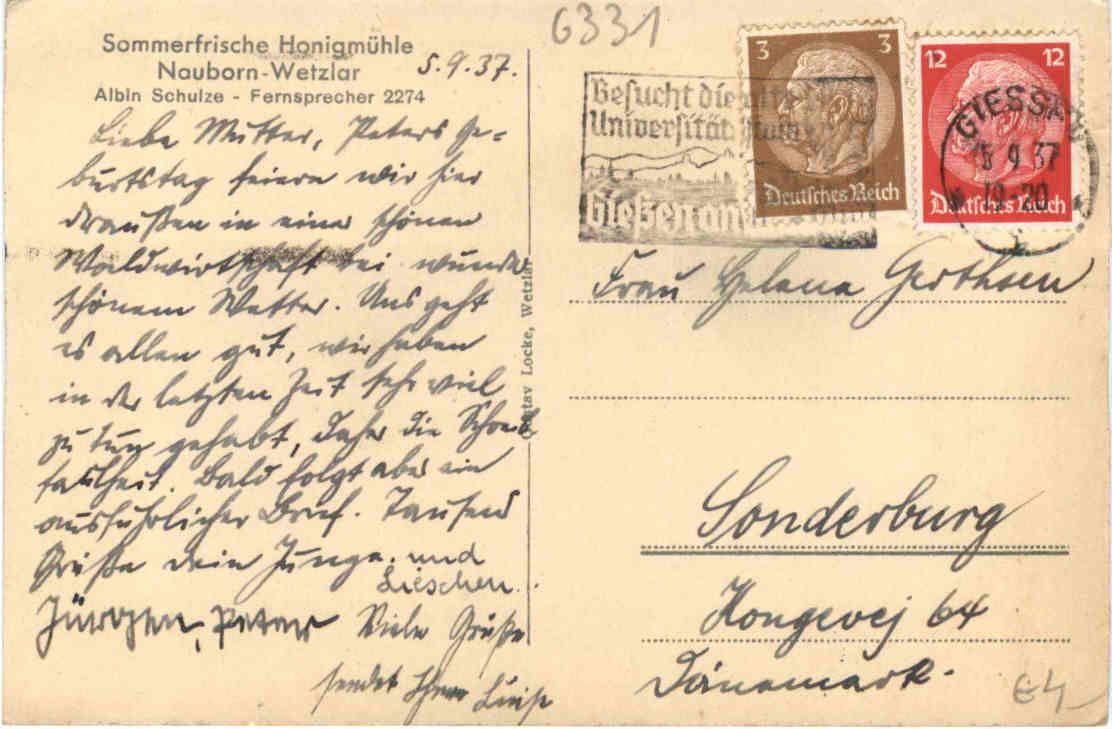 Sommerfrische Honigmühle
Nauborn-Wetzlar
Albin Schulze - Fernsprecher 2274
5.9.37.
Liebe Mutter, Peters Ge=
burtstag feiern wir hier
draußen in einer schönen
Waldwirtschaft bei wunder
schönem Wetter. Uns geht
es allen gut, wir haben
in der letzten Zeit sehr viel
zu tun gehabt, daher die Schreib
faulheit. Bald folgt aber ein
ausführlicher Brief. Tausend
Grüße dein Junge und
Lieschen.
Jürgen, Peter Viele Grüße
sendet Ihnen Luise
Gustav Locke, Wetzlar
6331
Besucht die
Universität
Gießen an der Lahn
3 3
Deutsches Reich
12 12
Deutsches Reich
GIESSEN
5.9.37
19-20
Frau Helene Gerthsen
Sonderburg
Kongevej 64
Dänemark.
64